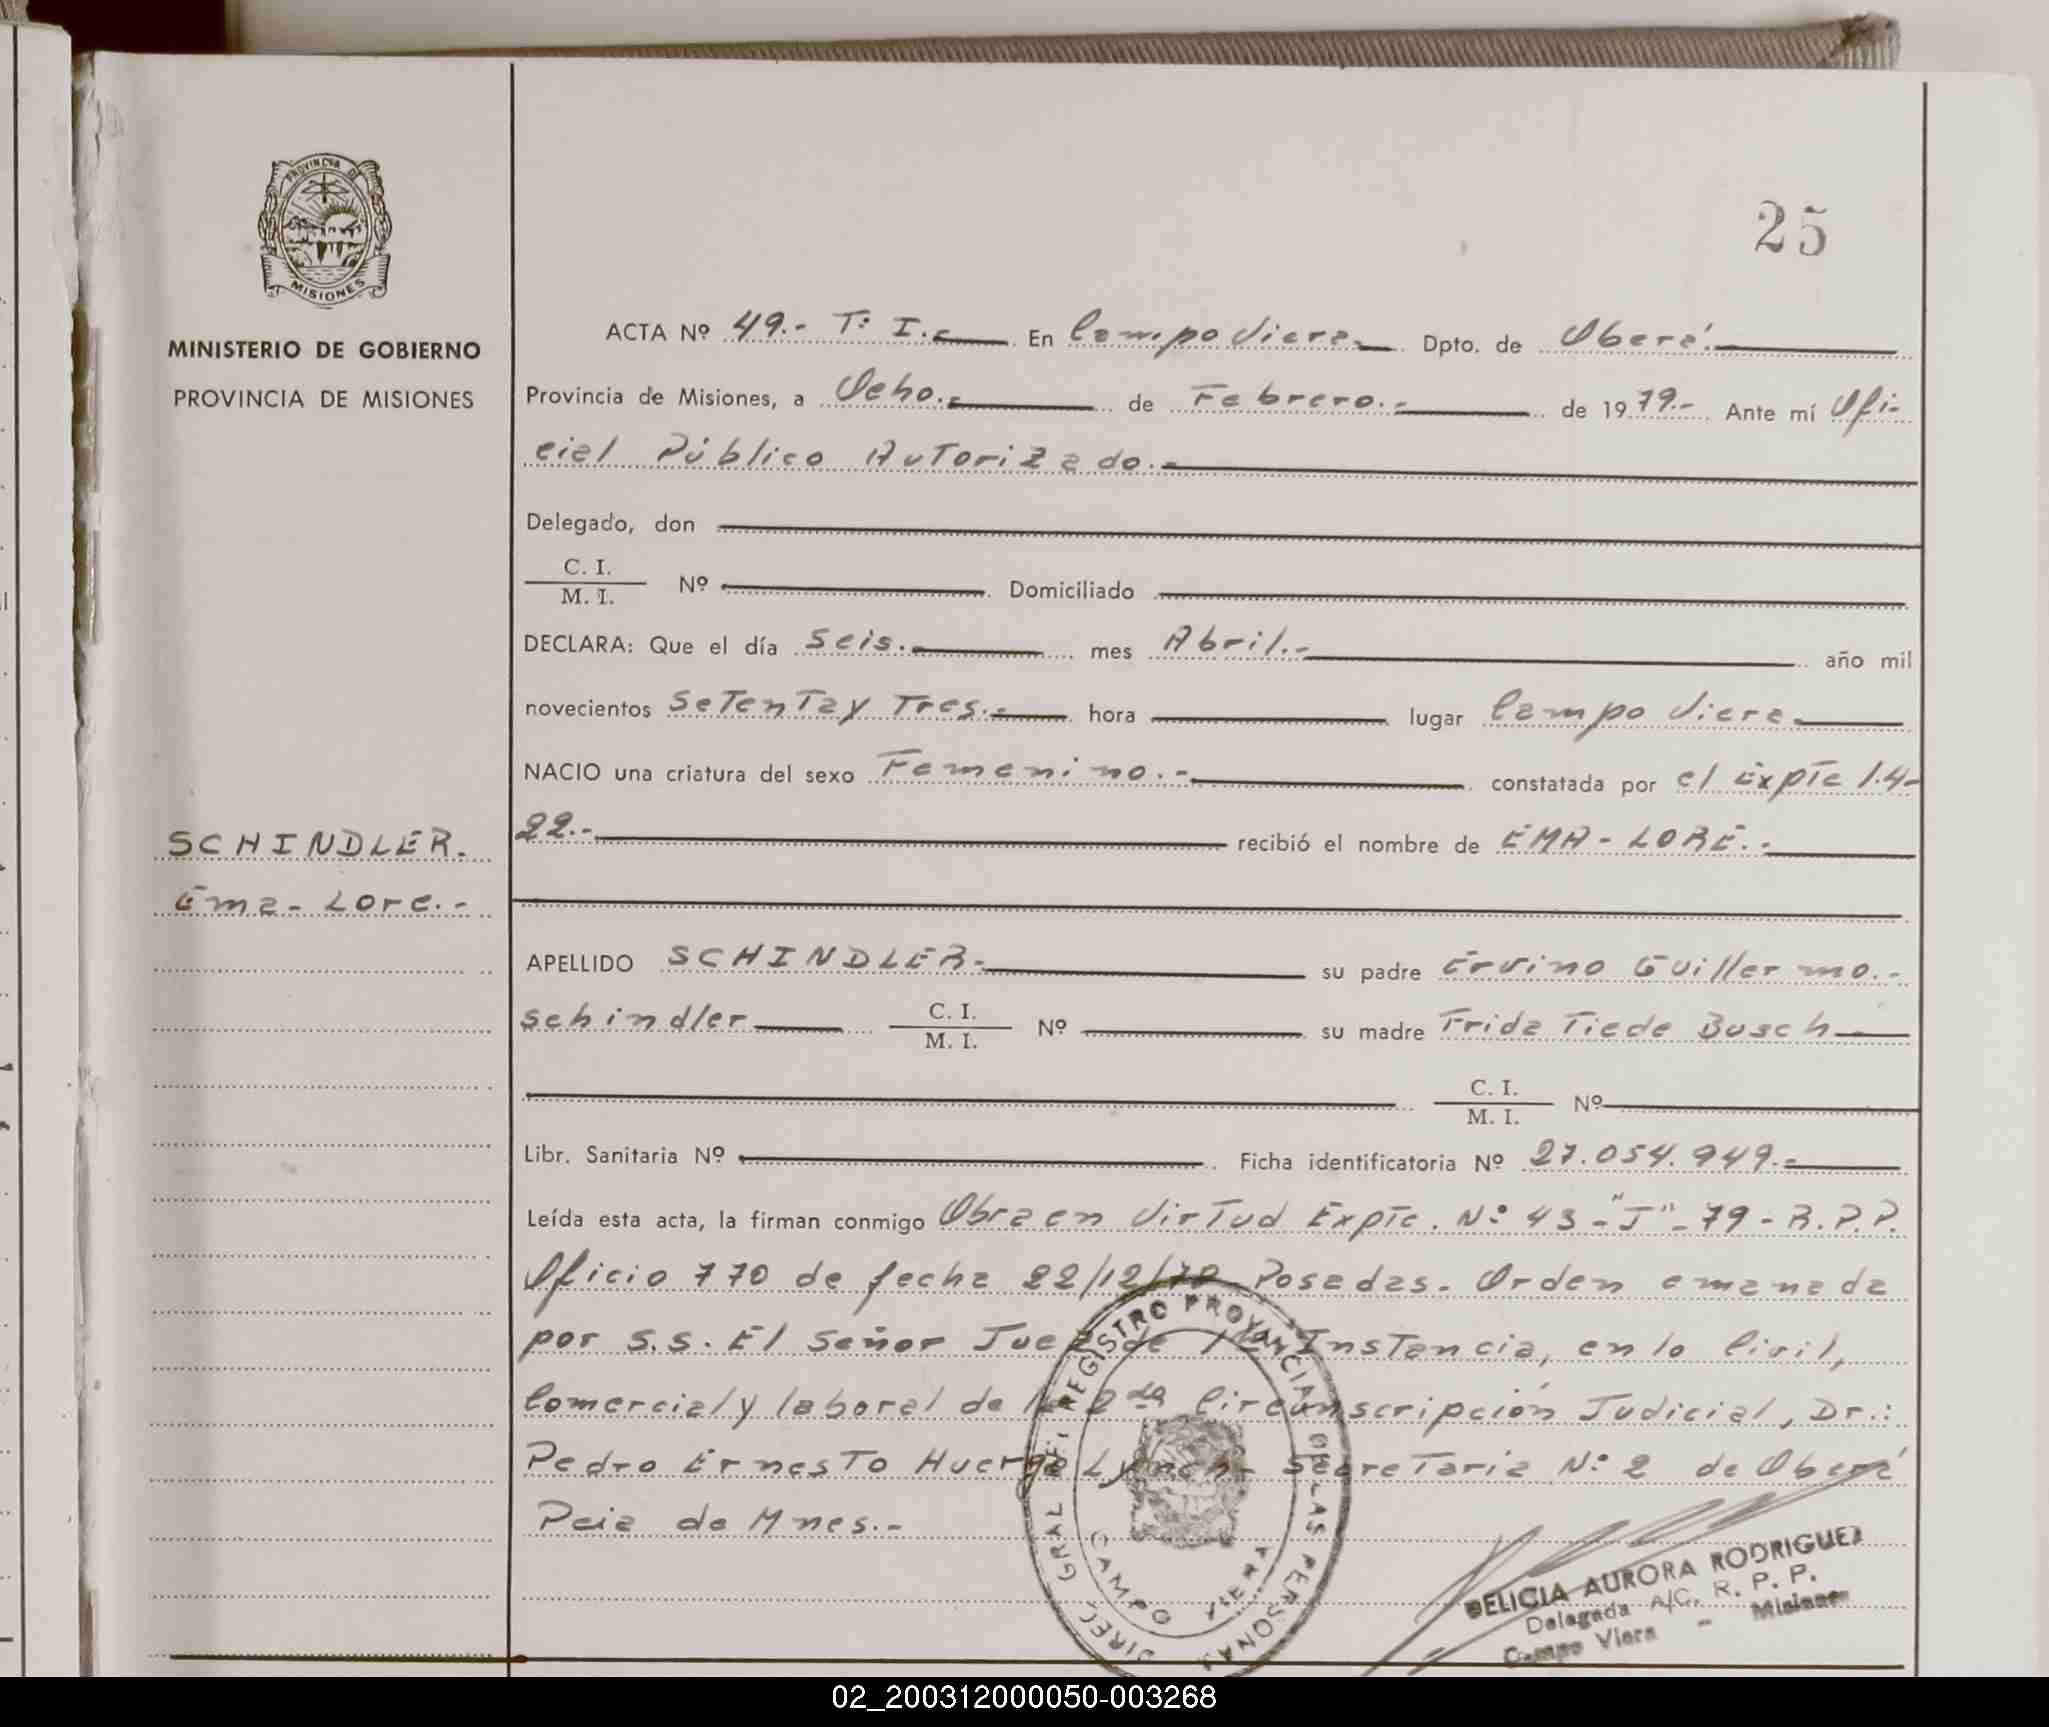 PROVINCIA DE
MISIONES
MINISTERIO DE GOBIERNO
PROVINCIA DE MISIONES
SCHINDLER.
Ema- Lore.-
25
ACTA Nº 49.- Tº I.- En Campo Viera.- Dpto. de Oberá.-
Provincia de Misiones, a Ocho.- de Febrero.- de 1979.- Ante mí Ofi-
cial Público Autorizado.-
Delegado, don
C. I.
M. I. Nº Domiciliado
DECLARA: Que el día seis.- mes Abril.- año mil
novecientos setenta y Tres.- hora lugar Campo Viera.
NACIO una criatura del sexo Femenino.- constatada por el Expte 1.4-
22.- recibió el nombre de EMA-LORE.-
APELLIDO SCHINDLER.- su padre Ervino Guillermo.-
schindler C. I.
M. I. Nº su madre Frida Tiede Busch
C. I.
M. I. Nº
Libr. Sanitaria Nº Ficha identificatoria Nº 27.054.949.-
Leída esta acta, la firman conmigo Obra en Virtud Expte. Nº 43-"J"-79-R.P.P.
Oficio 770 de fecha 22/12/78 Posadas. Orden emanada
por S.S. El Señor Juez de 1ra Instancia, en lo Civil,
Comercial y laboral de la 2da Circunscripción Judicial, Dr.:
Pedro Ernesto Huergo Lynch- Secretaria Nº 2 de Oberá
Pcia de Mnes.-
DIREC. GRAL. DEL REGISTRO PROVINCIAL DE LAS PERSONAS
CAMPO VIERA
DELICIA AURORA RODRIGUEZ
Delegada A/C. R. P. P.
Campo Viera - Misiones
02_200312000050-003268